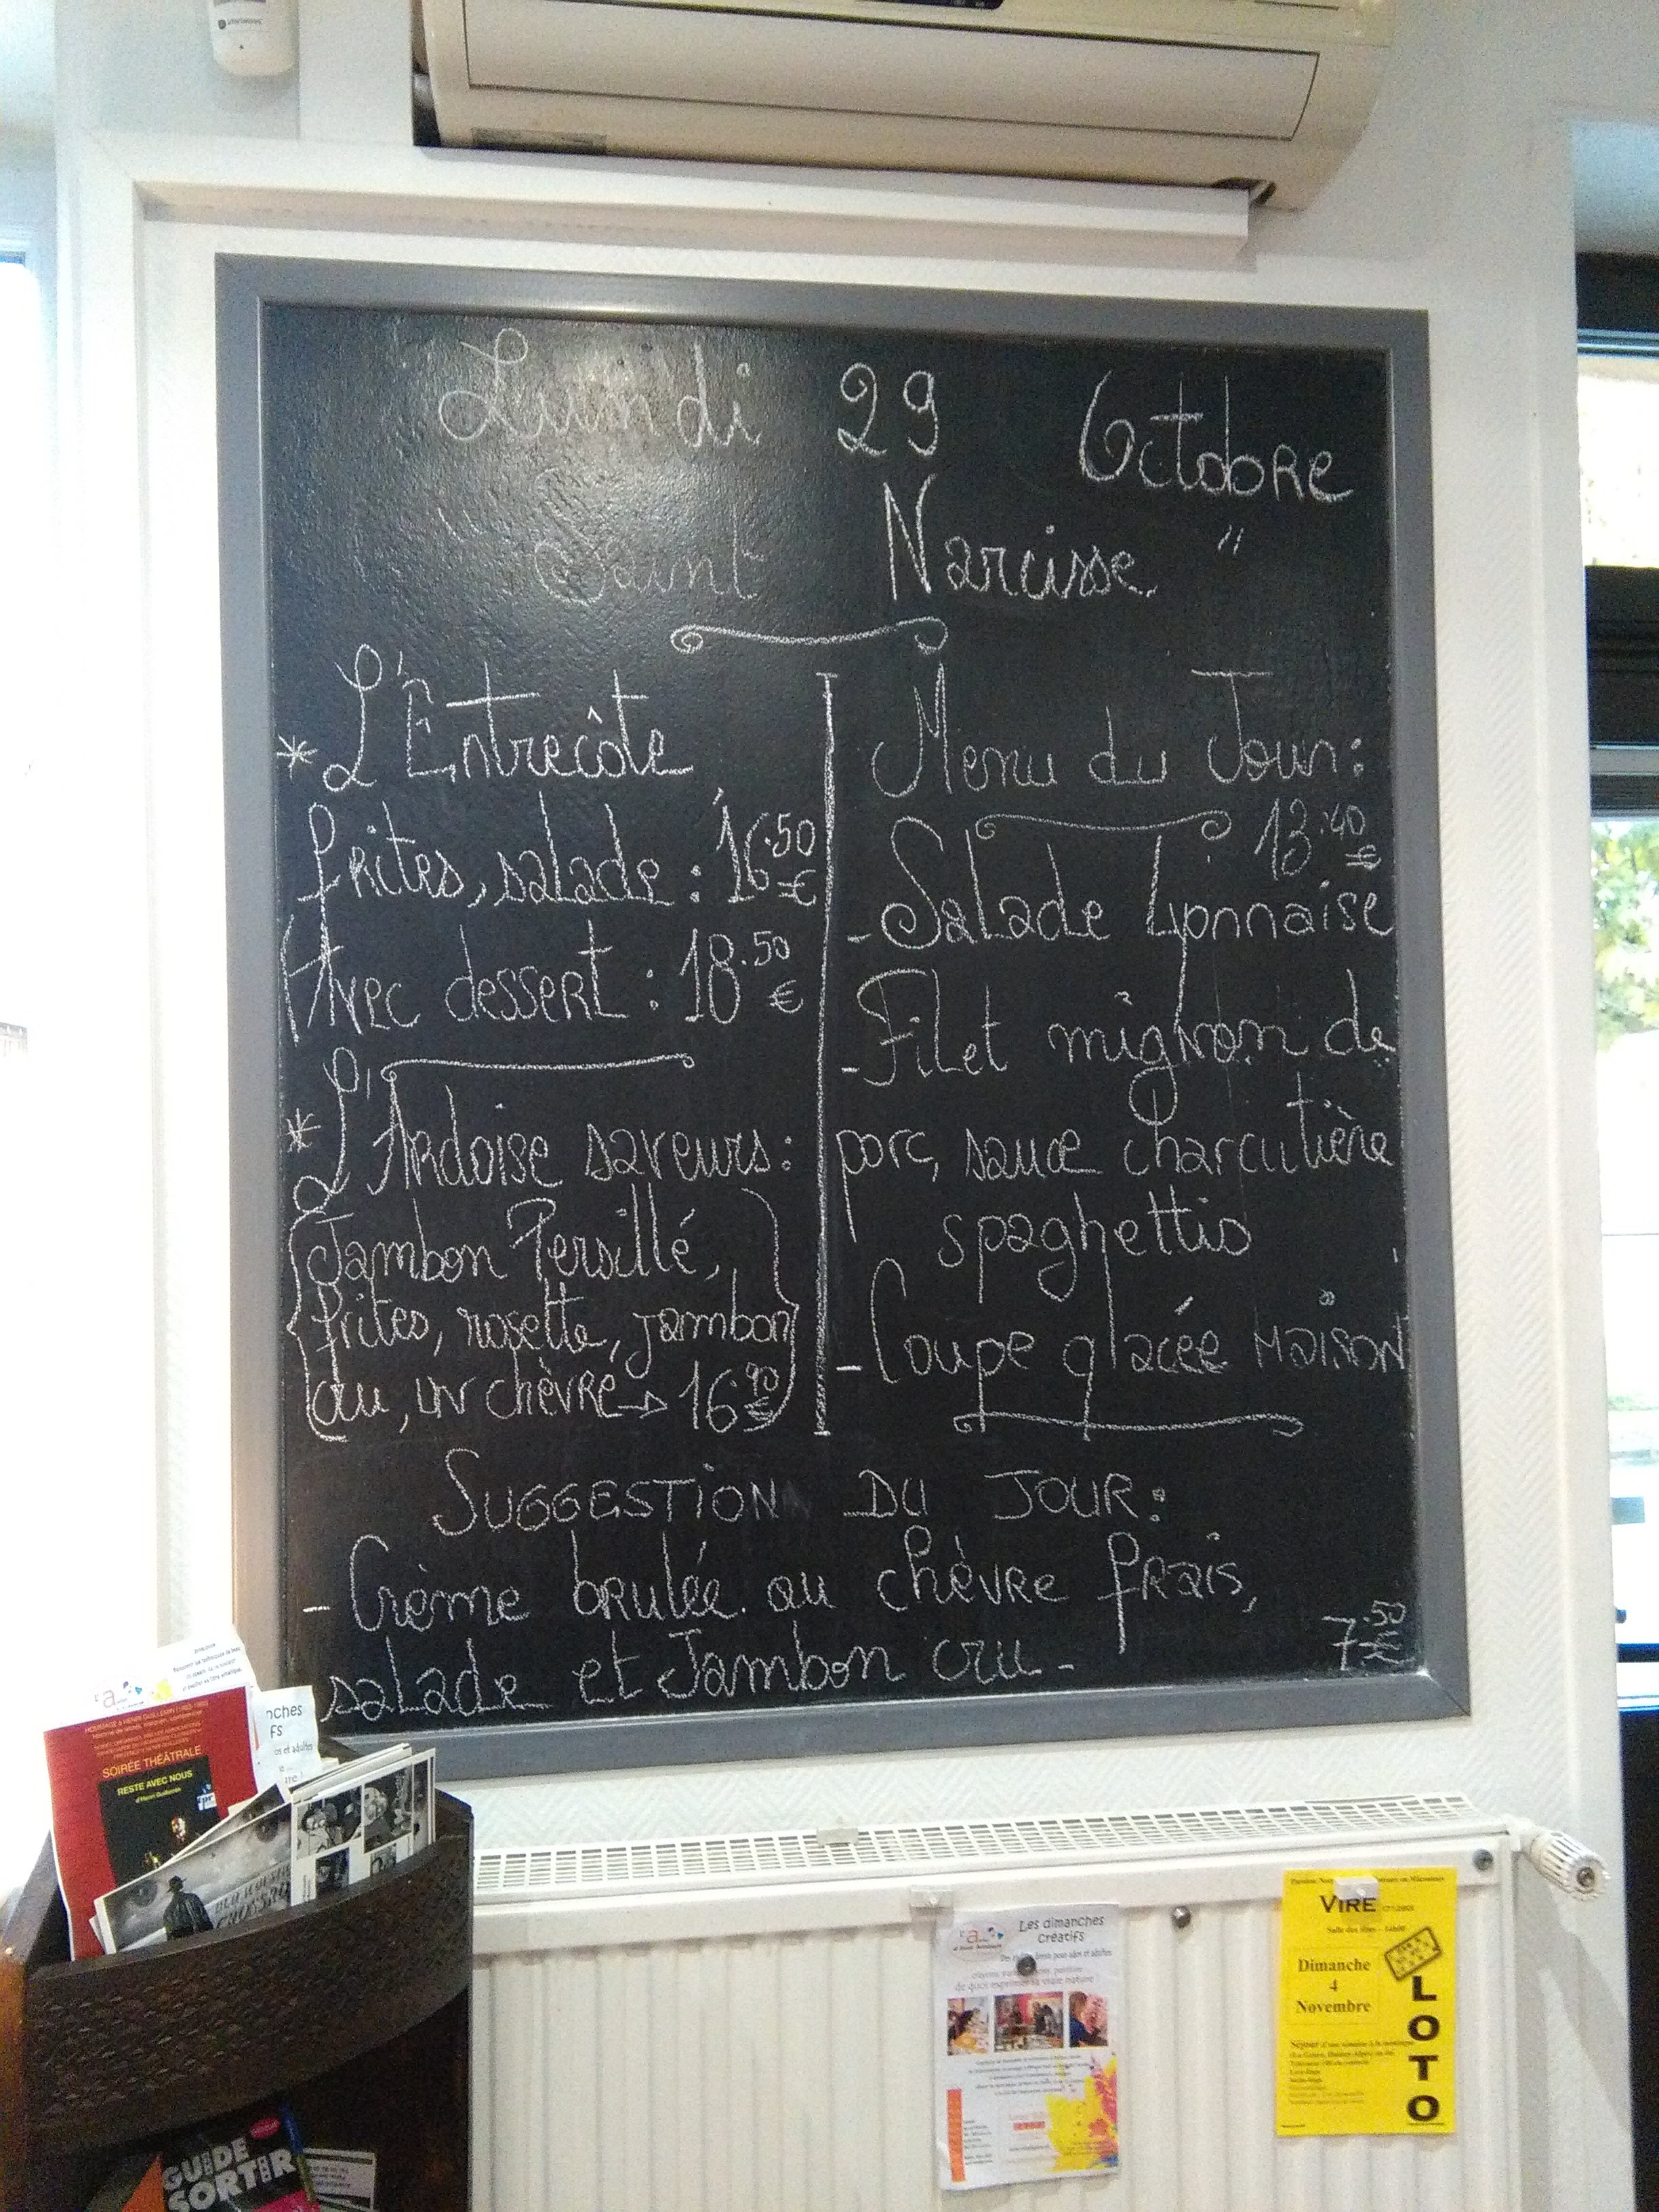 Lundi 29 Octobre
" Saint Narcisse "
* L'Entrecôte
frites, salade : 16.50 €
(Avec dessert : 18.50 €
* L'Ardoise saveurs :
{Jambon Persillé,
frites, rosette, jambon
cru, un chèvre → 16.90 €}
Menu du Jour :
13.40 €
- Salade Lyonnaise
- Filet mignon de
porc, sauce charcutière
spaghettis
- Coupe glacée maison
SUGGESTION DU JOUR :
- Crème brulée au chèvre frais,
salade et Jambon cru - 7.50 €
SOIRÉE THÉÂTRALE
RESTE AVEC NOUS
d'Henri Guillemin
GUIDE
SORTIR
Les dimanches
créatifs
VIRE
Dimanche
4
Novembre
LOTO